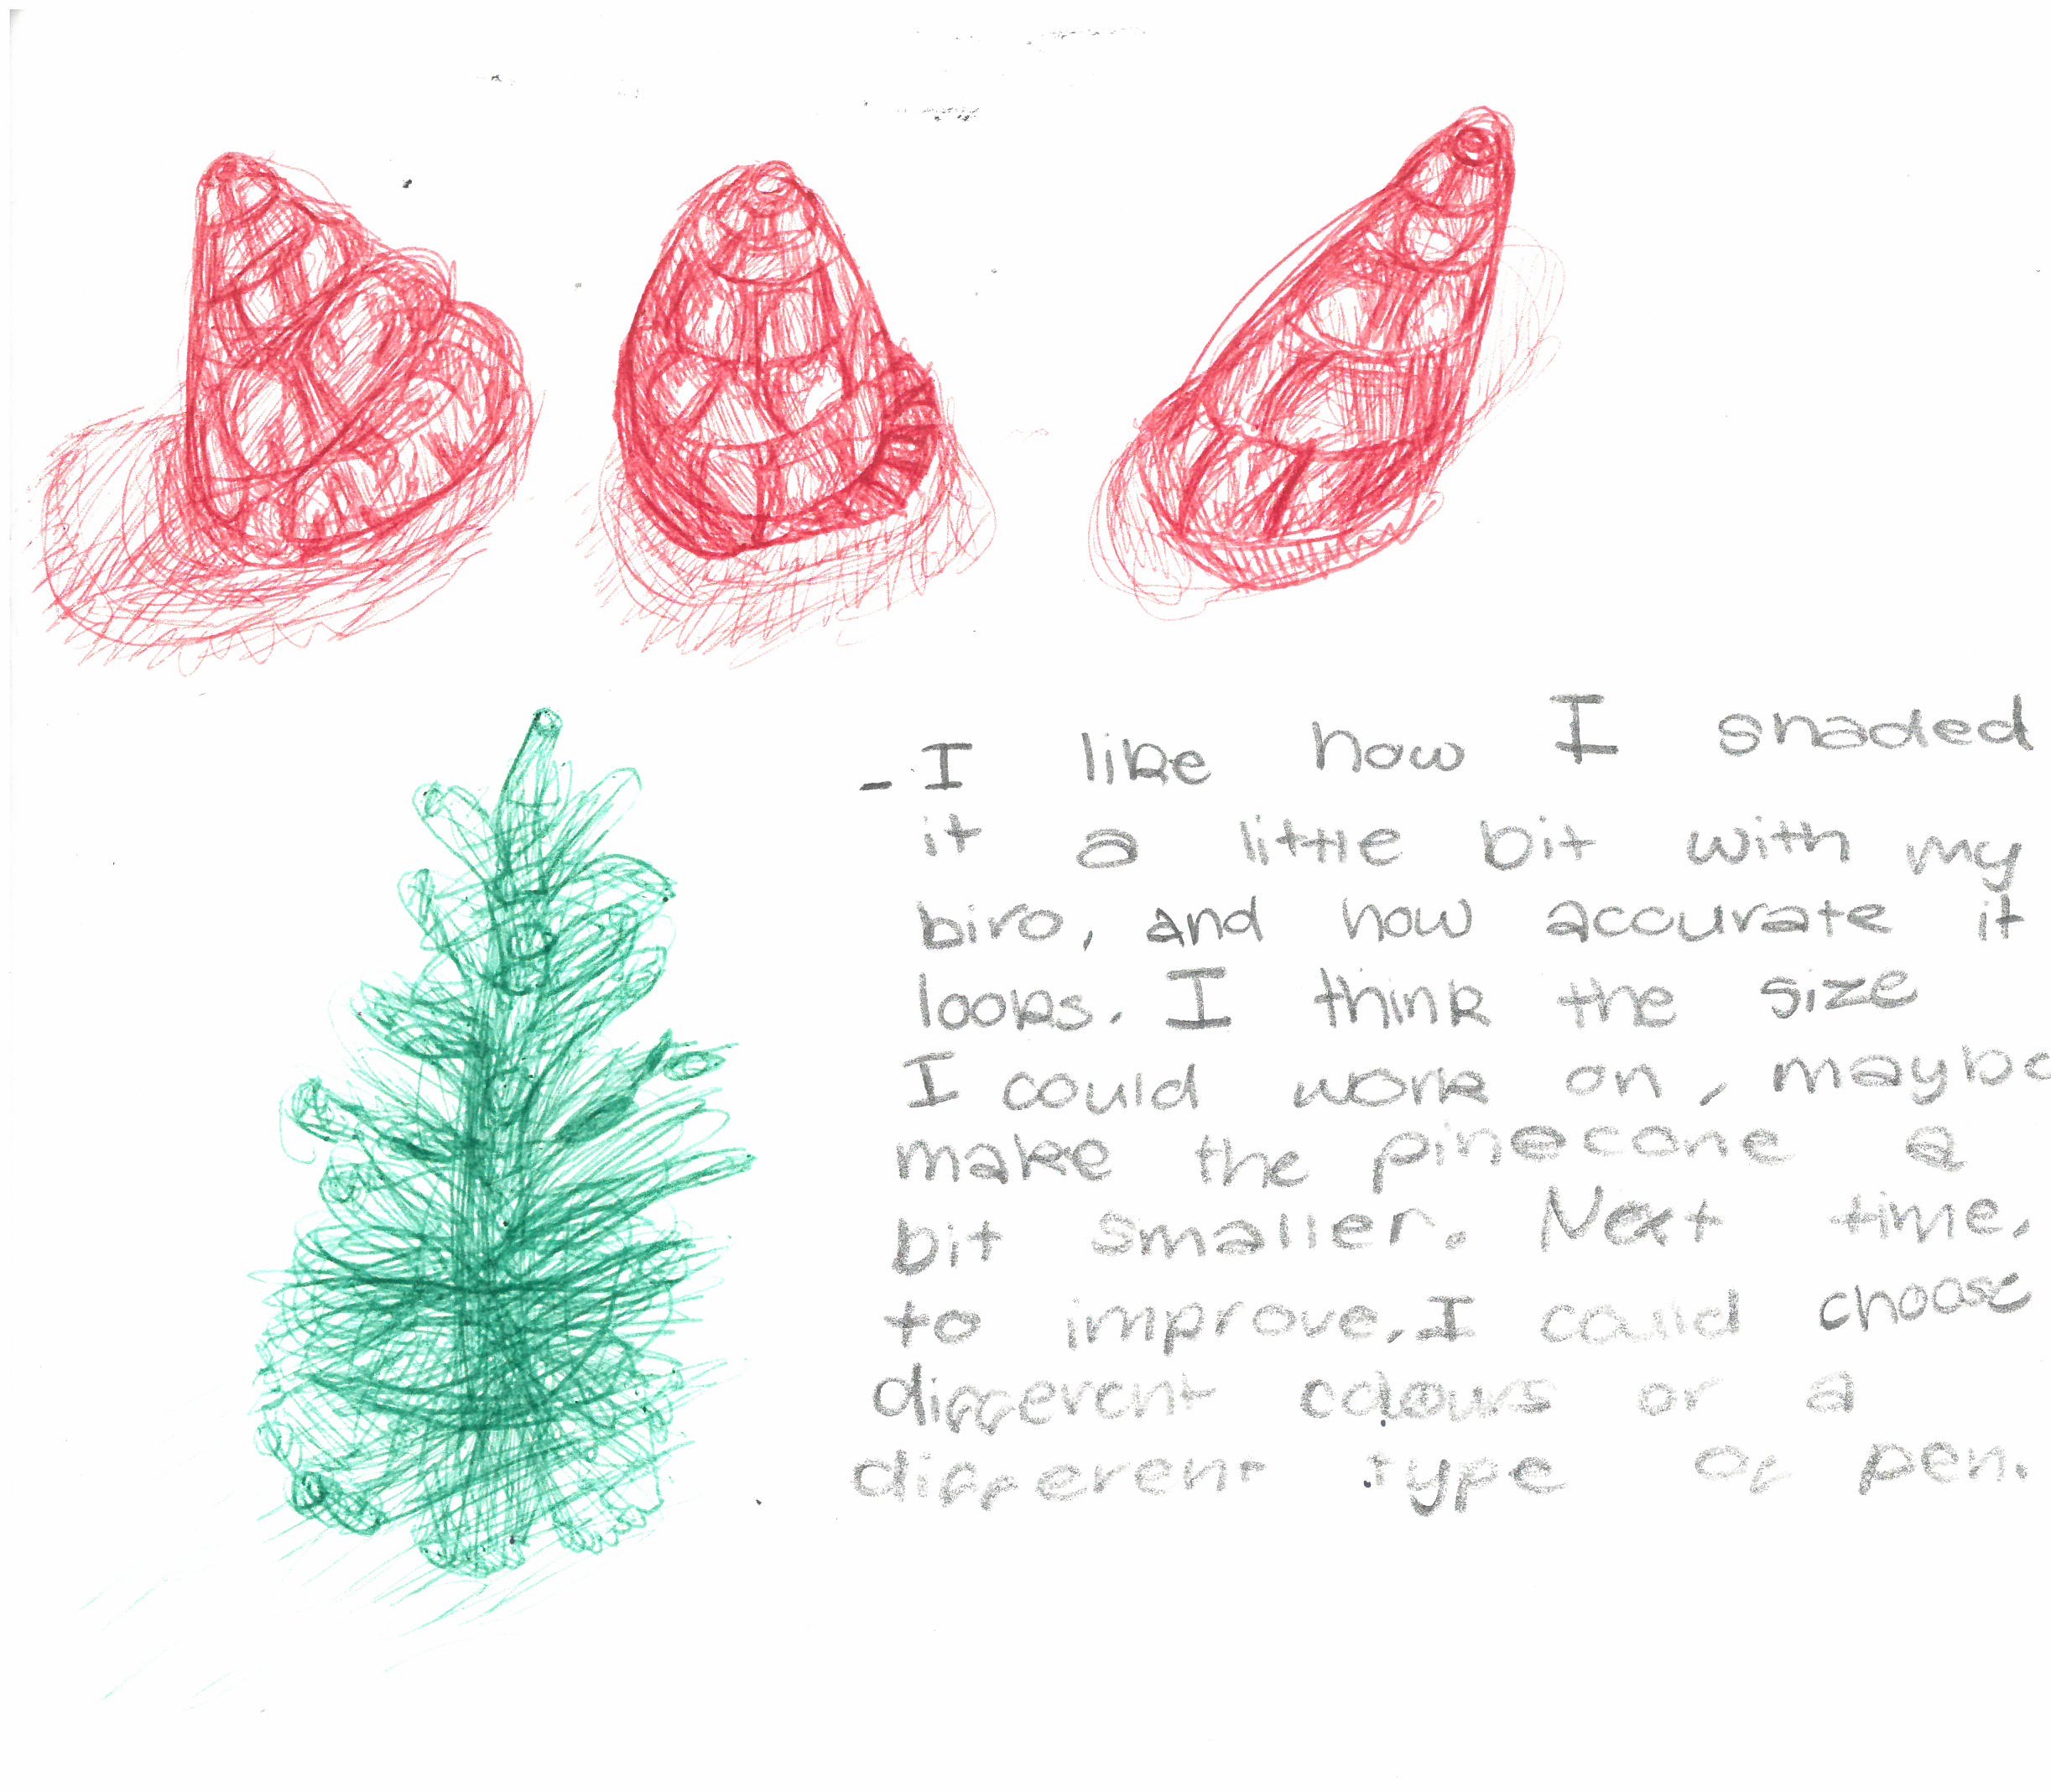 - I like how I shaded
it a little bit with my
biro, and how accurate it
looks. I think the size
I could work on, maybe
make the pinecone a
bit smaller. Next time,
to improve, I could choose
different colours or a
different type of pen.